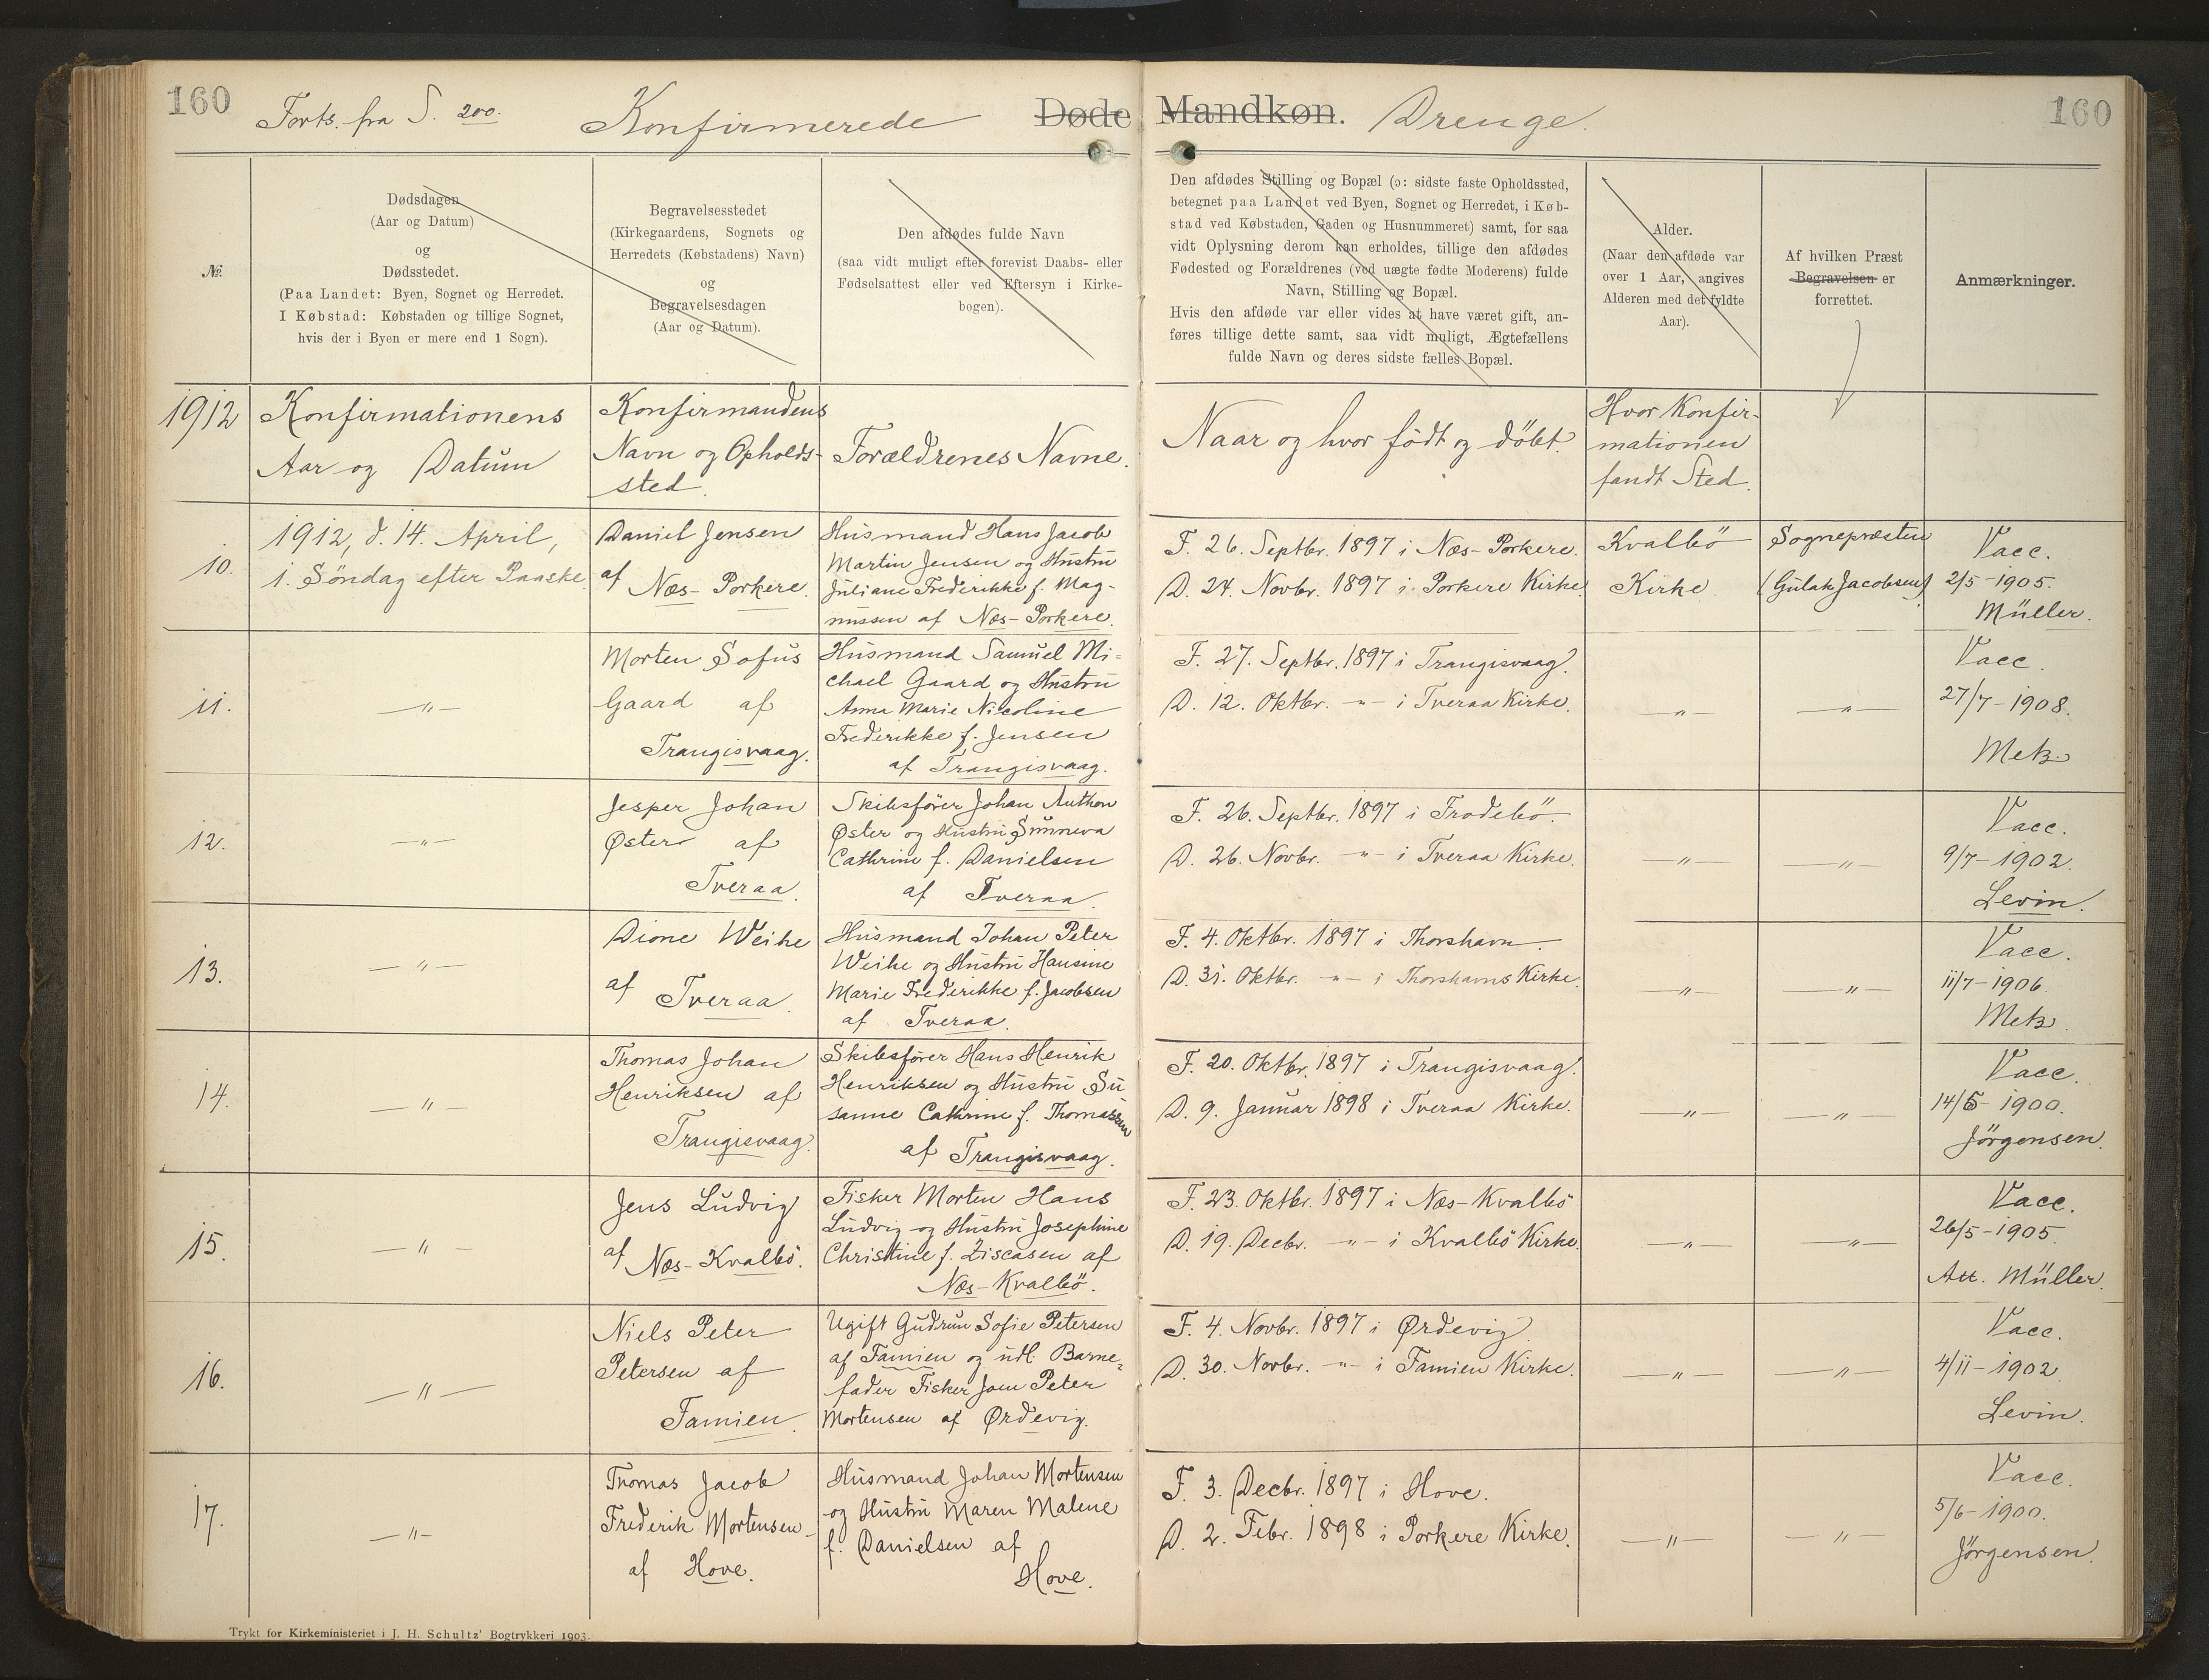 160
Forts. fra S. 200.
Konfirmerede
Døde Mandkøn.
Drenge.
160
№
Dødsdagen
(Aar og Datum)
og
Dødsstedet.
(Paa Landet: Byen, Sognet og Herredet.
I Købstad: Købstaden og tillige Sognet,
hvis der i Byen er mere end 1 Sogn).
Begravelsesstedet
(Kirkegaardens, Sognets og
Herredets (Købstadens) Navn)
og
Begravelsesdagen
(Aar og Datum).
Den afdødes fulde Navn
(saa vidt muligt efter forevist Daabs- eller
Fødselsattest eller ved Eftersyn i Kirke-
bogen).
Den afdødes Stilling og Bopæl (ɔ: sidste faste Opholdssted,
betegnet paa Landet ved Byen, Sognet og Herredet, i Køb-
stad ved Købstaden, Gaden og Husnummeret) samt, for saa
vidt Oplysning derom kan erholdes, tillige den afdødes
Fødested og Forældrenes (ved uægte fødte Moderens) fulde
Navn, Stilling og Bopæl.
Hvis den afdøde var eller vides at have været gift, an-
føres tillige dette samt, saa vidt muligt, Ægtefællens
fulde Navn og deres sidste fælles Bopæl.
Alder.
(Naar den afdøde var
over 1 Aar, angives
Alderen med det fyldte
Aar).
Af hvilken Præst
Begravelsen er
forrettet.
Anmærkninger.
1912
Konfirmationens
Aar og Datum
Konfirmandens
Navn og Opholds-
sted.
Forældrenes Navne.
Naar og hvor födt og döbt.
Hvor Konfir-
mationen
fandt Sted.
10.
1912, d. 14. April,
1. Söndag efter Paaske.
Daniel Jensen
af Næs-Porkere.
Husmand Hans Jacob
Martin Jensen og Hustru
Juliane Frederikke f. Mag-
nussen af Næs-Porkere.
F. 26. Septbr. 1897 i Næs-Porkere.
D. 24. Novbr. 1897 i Porkere Kirke.
Kvalbö
Kirke.
Sognepræsten
(Gulak Jacobsen)
Vacc.
2/5-1905.
Müller.
11.
—„—
Morten Sofus
Gaard af
Trangisvaag.
Husmand Samuel Mi-
chael Gaard og Hustru
Anna Marie Nicoline
Frederikke f. Jensen
af Trangisvaag.
F. 27. Septbr. 1897 i Trangisvaag.
D. 12. Oktbr. -„- i Tveraa Kirke.
—„—
—„—
Vacc.
27/7-1908.
Metz.
12.
—„—
Jesper Johan
Øster af
Tveraa.
Skibsförer Johan Anthon
Øster og Hustru Sunneva
Cathrine f. Danielsen
af Tveraa.
F. 26. Septbr. 1897 i Frodebö.
D. 26. Novbr. -„- i Tveraa Kirke.
—„—
—„—
Vacc.
9/7-1902.
Levin.
13.
—„—
Dione Weihe
af Tveraa.
Husmand Johan Peter
Weihe og Hustru Hansine
Marie Frederikke f. Jacobsen
af Tveraa.
F. 4. Oktbr. 1897 i Thorshavn.
D. 31. Oktbr. -„- i Thorshavns Kirke.
—„—
—„—
Vacc.
11/7-1906.
Metz.
14.
—„—
Thomas Johan
Henriksen af
Trangisvaag.
Skibsförer Hans Henrik
Henriksen og Hustru Su
sanne Cathrine f. Thomassen
af Trangisvaag.
F. 20. Oktbr. 1897 i Trangisvaag.
D. 9. Januar 1898 i Tveraa Kirke.
—„—
—„—
Vacc.
14/5-1900.
Jörgensen.
15.
—„—
Jens Ludvig
af Næs-Kvalbö.
Fisker Morten Hans
Ludvig og Hustru Josephine
Christine f. Ziscasen af
Næs-Kvalbö.
F. 23. Oktbr. 1897 i Næs-Kvalbö
D. 19. Decbr. -„- i Kvalbö Kirke.
—„—
—„—
Vacc.
26/5-1905.
Att. Müller.
16.
—„—
Niels Peter
Petersen af
Famien.
Ugift Gudrun Sofie Petersen
af Famien og udl. Barne-
fader Fisker Joen Peter
Mortensen af Ørdevig.
F. 4. Novbr. 1897 i Ørdevig.
D. 30. Novbr. -„- i Famien Kirke.
—„—
—„—
Vacc.
4/11-1902.
Levin.
17.
—„—
Thomas Jacob
Frederik Mortensen
af Hove.
Husmand Johan Mortensen
og Hustru Maren Malene
f. Danielsen af
Hove.
F. 3. Decbr. 1897 i Hove.
D. 2. Febr. 1898 i Porkere Kirke.
—„—
—„—
Vacc.
5/6-1900.
Jörgensen.
Trykt for Kirkeministeriet i J. H. Schultz' Bogtrykkeri 1903.